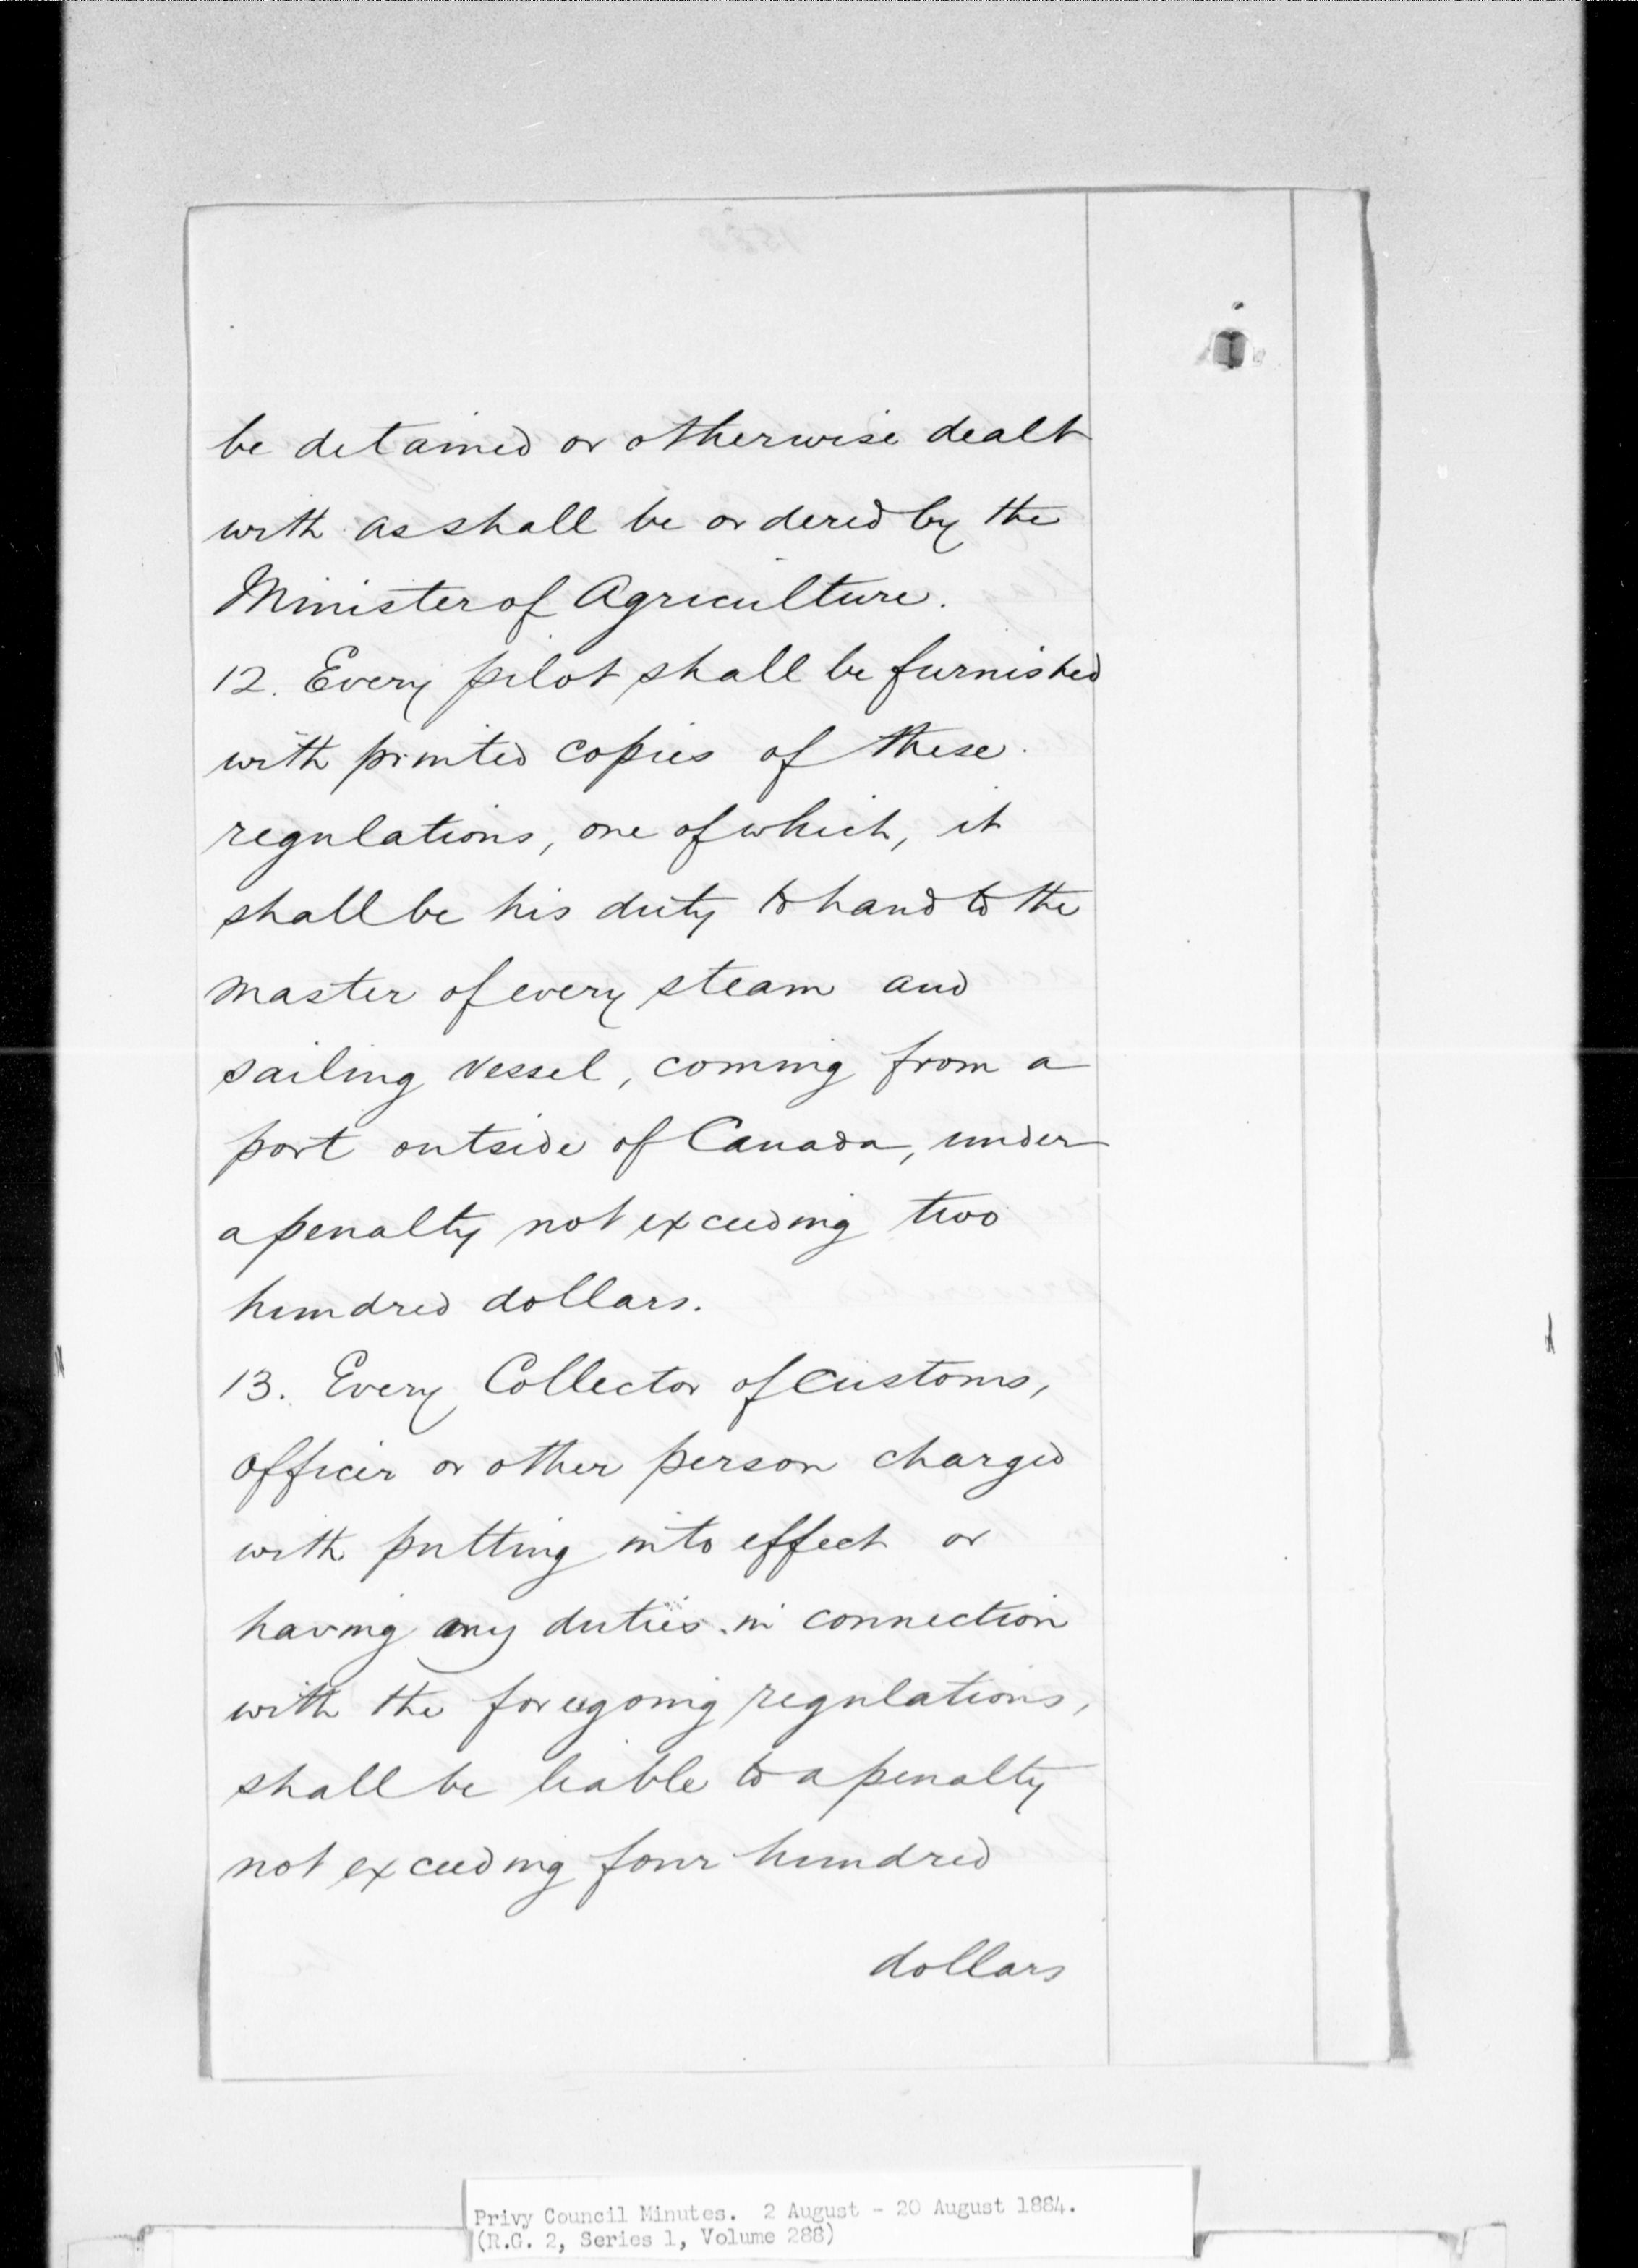 be detained or otherwise dealt
with as shall be ordered by the
Minister of Agriculture.
12. Every pilot shall be furnished
with printed copies of these
regulations, one of which, it
shall be his duty to hand to the
master of every steam and
sailing vessel, coming from a
port outside of Canada, under
a penalty not exceeding two
hundred dollars.
13. Every Collector of Customs,
officer or other person charged
with putting into effect or
having any duties in connection
with the foregoing regulations,
shall be liable to a penalty
not exceeding four hundred
dollars
Privy Council Minutes. 2 August - 20 August 1884.
(R.G. 2, Series 1, Volume 288)